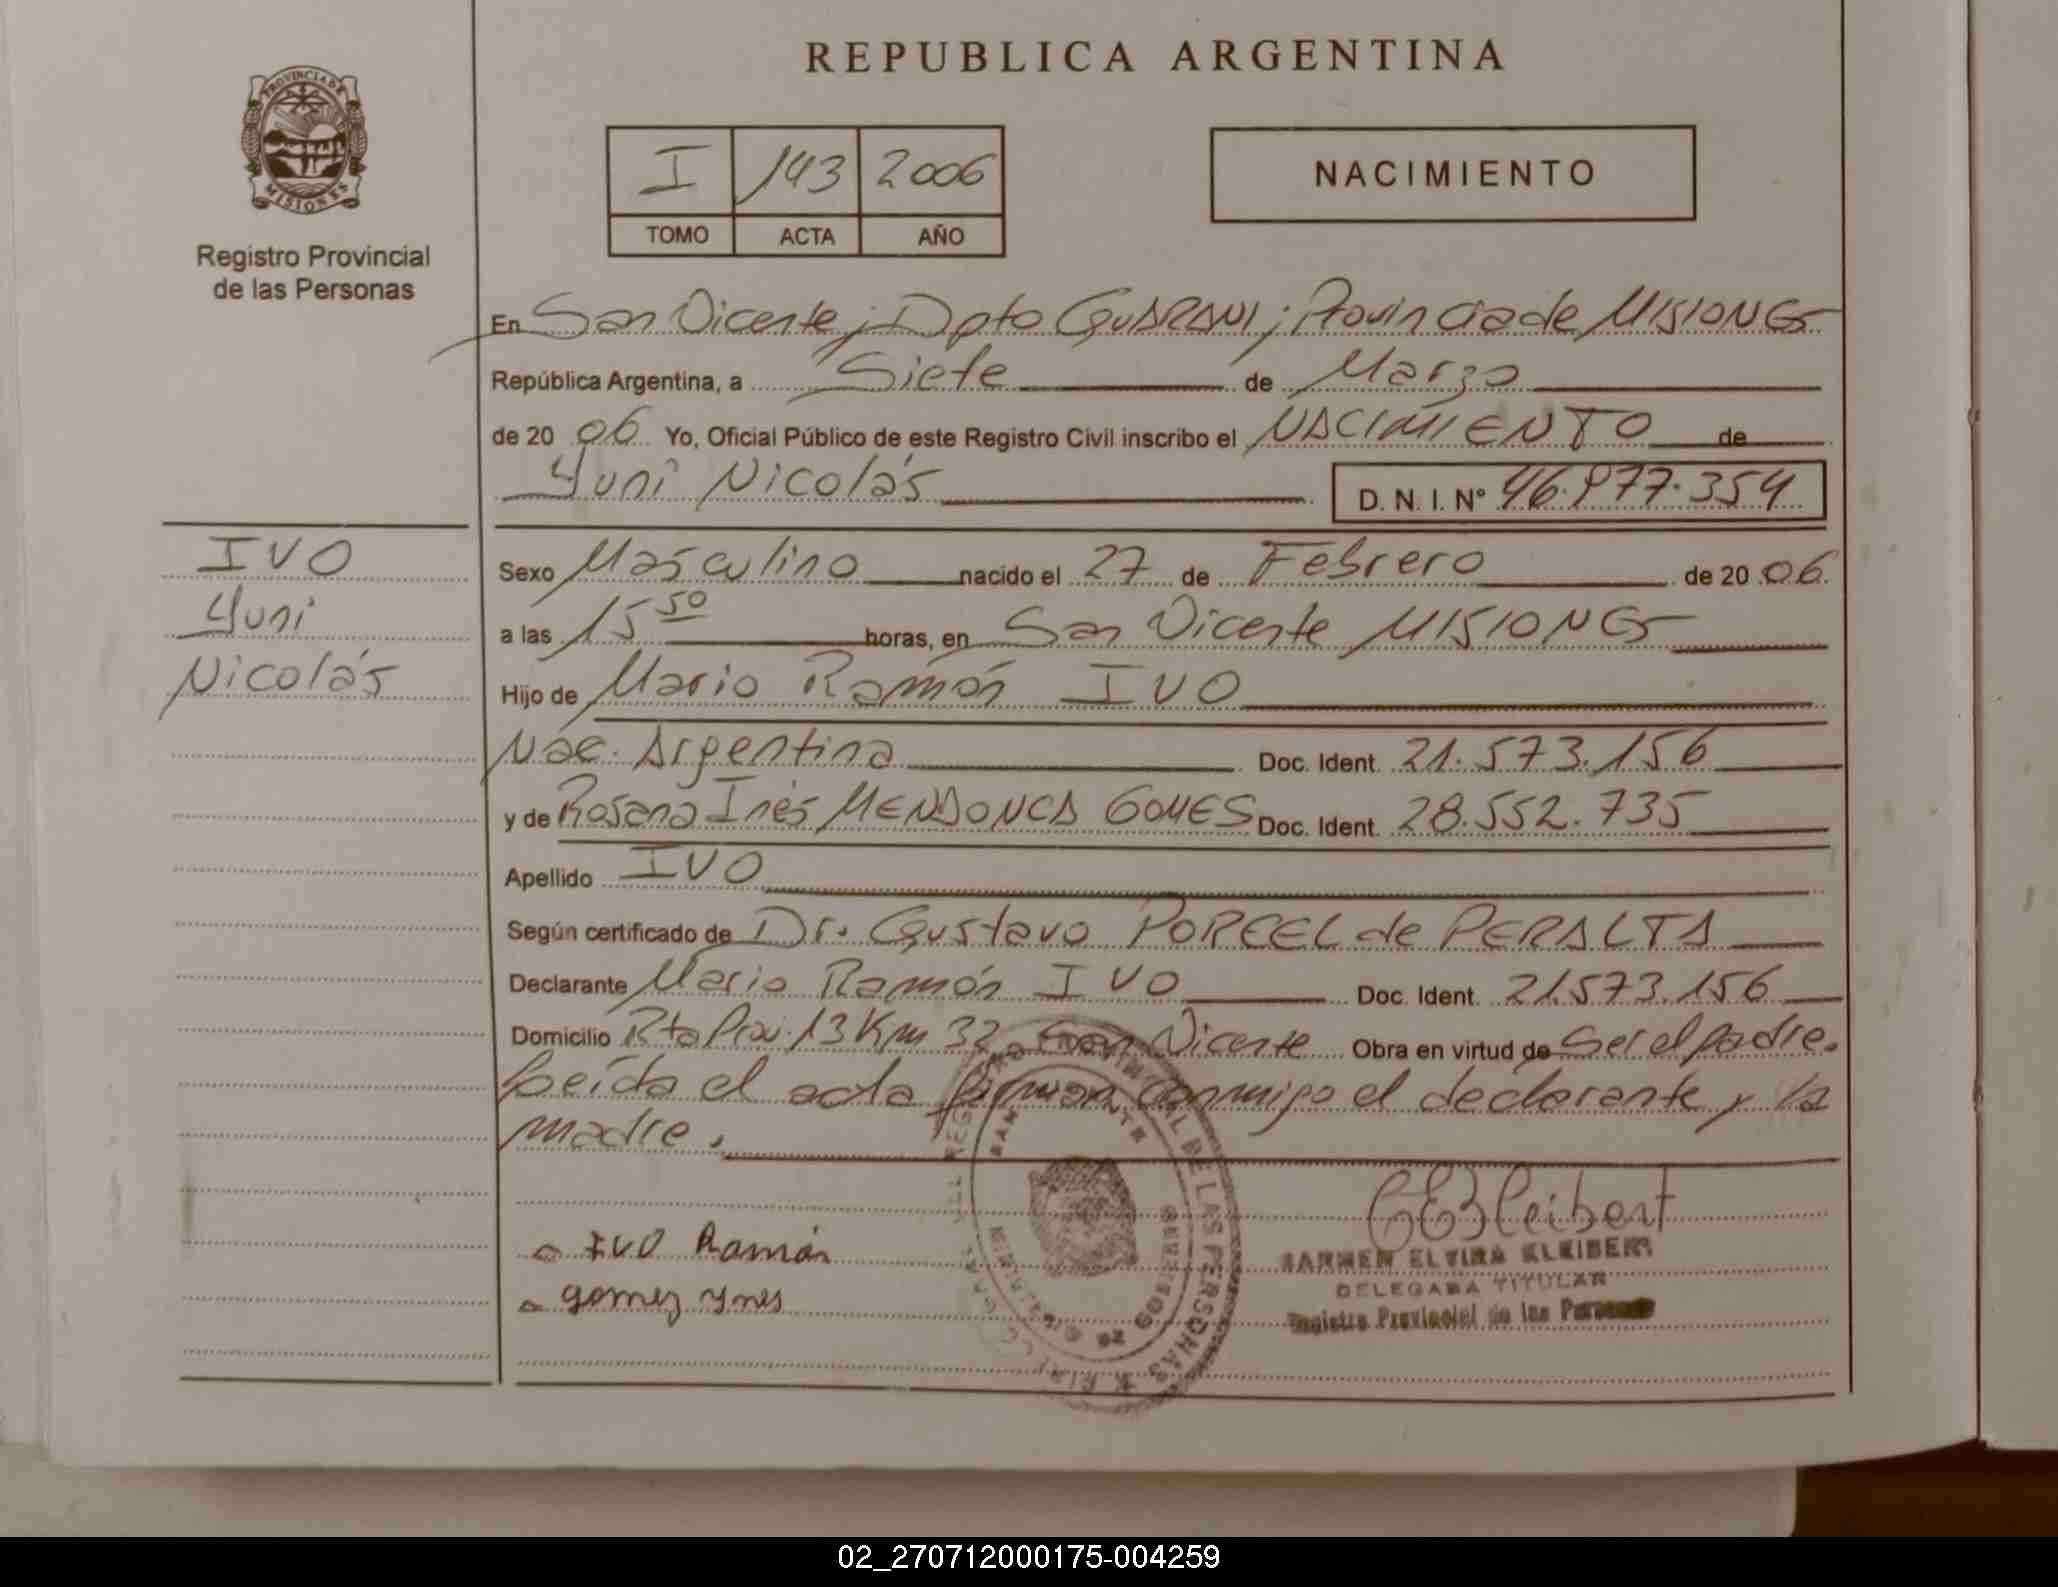 REPUBLICA ARGENTINA
PROVINCIA DE
MISIONES
Registro Provincial
de las Personas
I 143 2006
TOMO ACTA AÑO
NACIMIENTO
En San Vicente; Dpto GUARANI; Provincia de MISIONES
República Argentina, a Siete de Marzo
de 20 06 Yo, Oficial Público de este Registro Civil inscribo el NACIMIENTO de
Yuni Nicolás D. N. I. Nº 46.977.354
IVO
Yuni
Nicolás
Sexo Masculino nacido el 27 de Febrero de 20 06
a las 15 50 horas, en San Vicente MISIONES
Hijo de Mario Ramón IVO
Nac. Argentina Doc. Ident. 21.573.156
y de Rosana Inés MENDONCA GOMES Doc. Ident. 28.552.735
Apellido IVO
Según certificado de Dr. Gustavo PORCEL de PERALTA
Declarante Mario Ramón IVO Doc. Ident. 21.573.156
Domicilio Rta Prov. 13 Km 32 San Vicente Obra en virtud de Ser el padre.
Leída el acta firman conmigo el declarante y la
madre.
IVO Ramón
gomez ynes
CEKleibert
CARMEN ELVIRA KLEIBERT
DELEGADA TITULAR
Registro Provincial de las Personas
SAN VICENTE
DE LAS PERSONAS
02_270712000175-004259